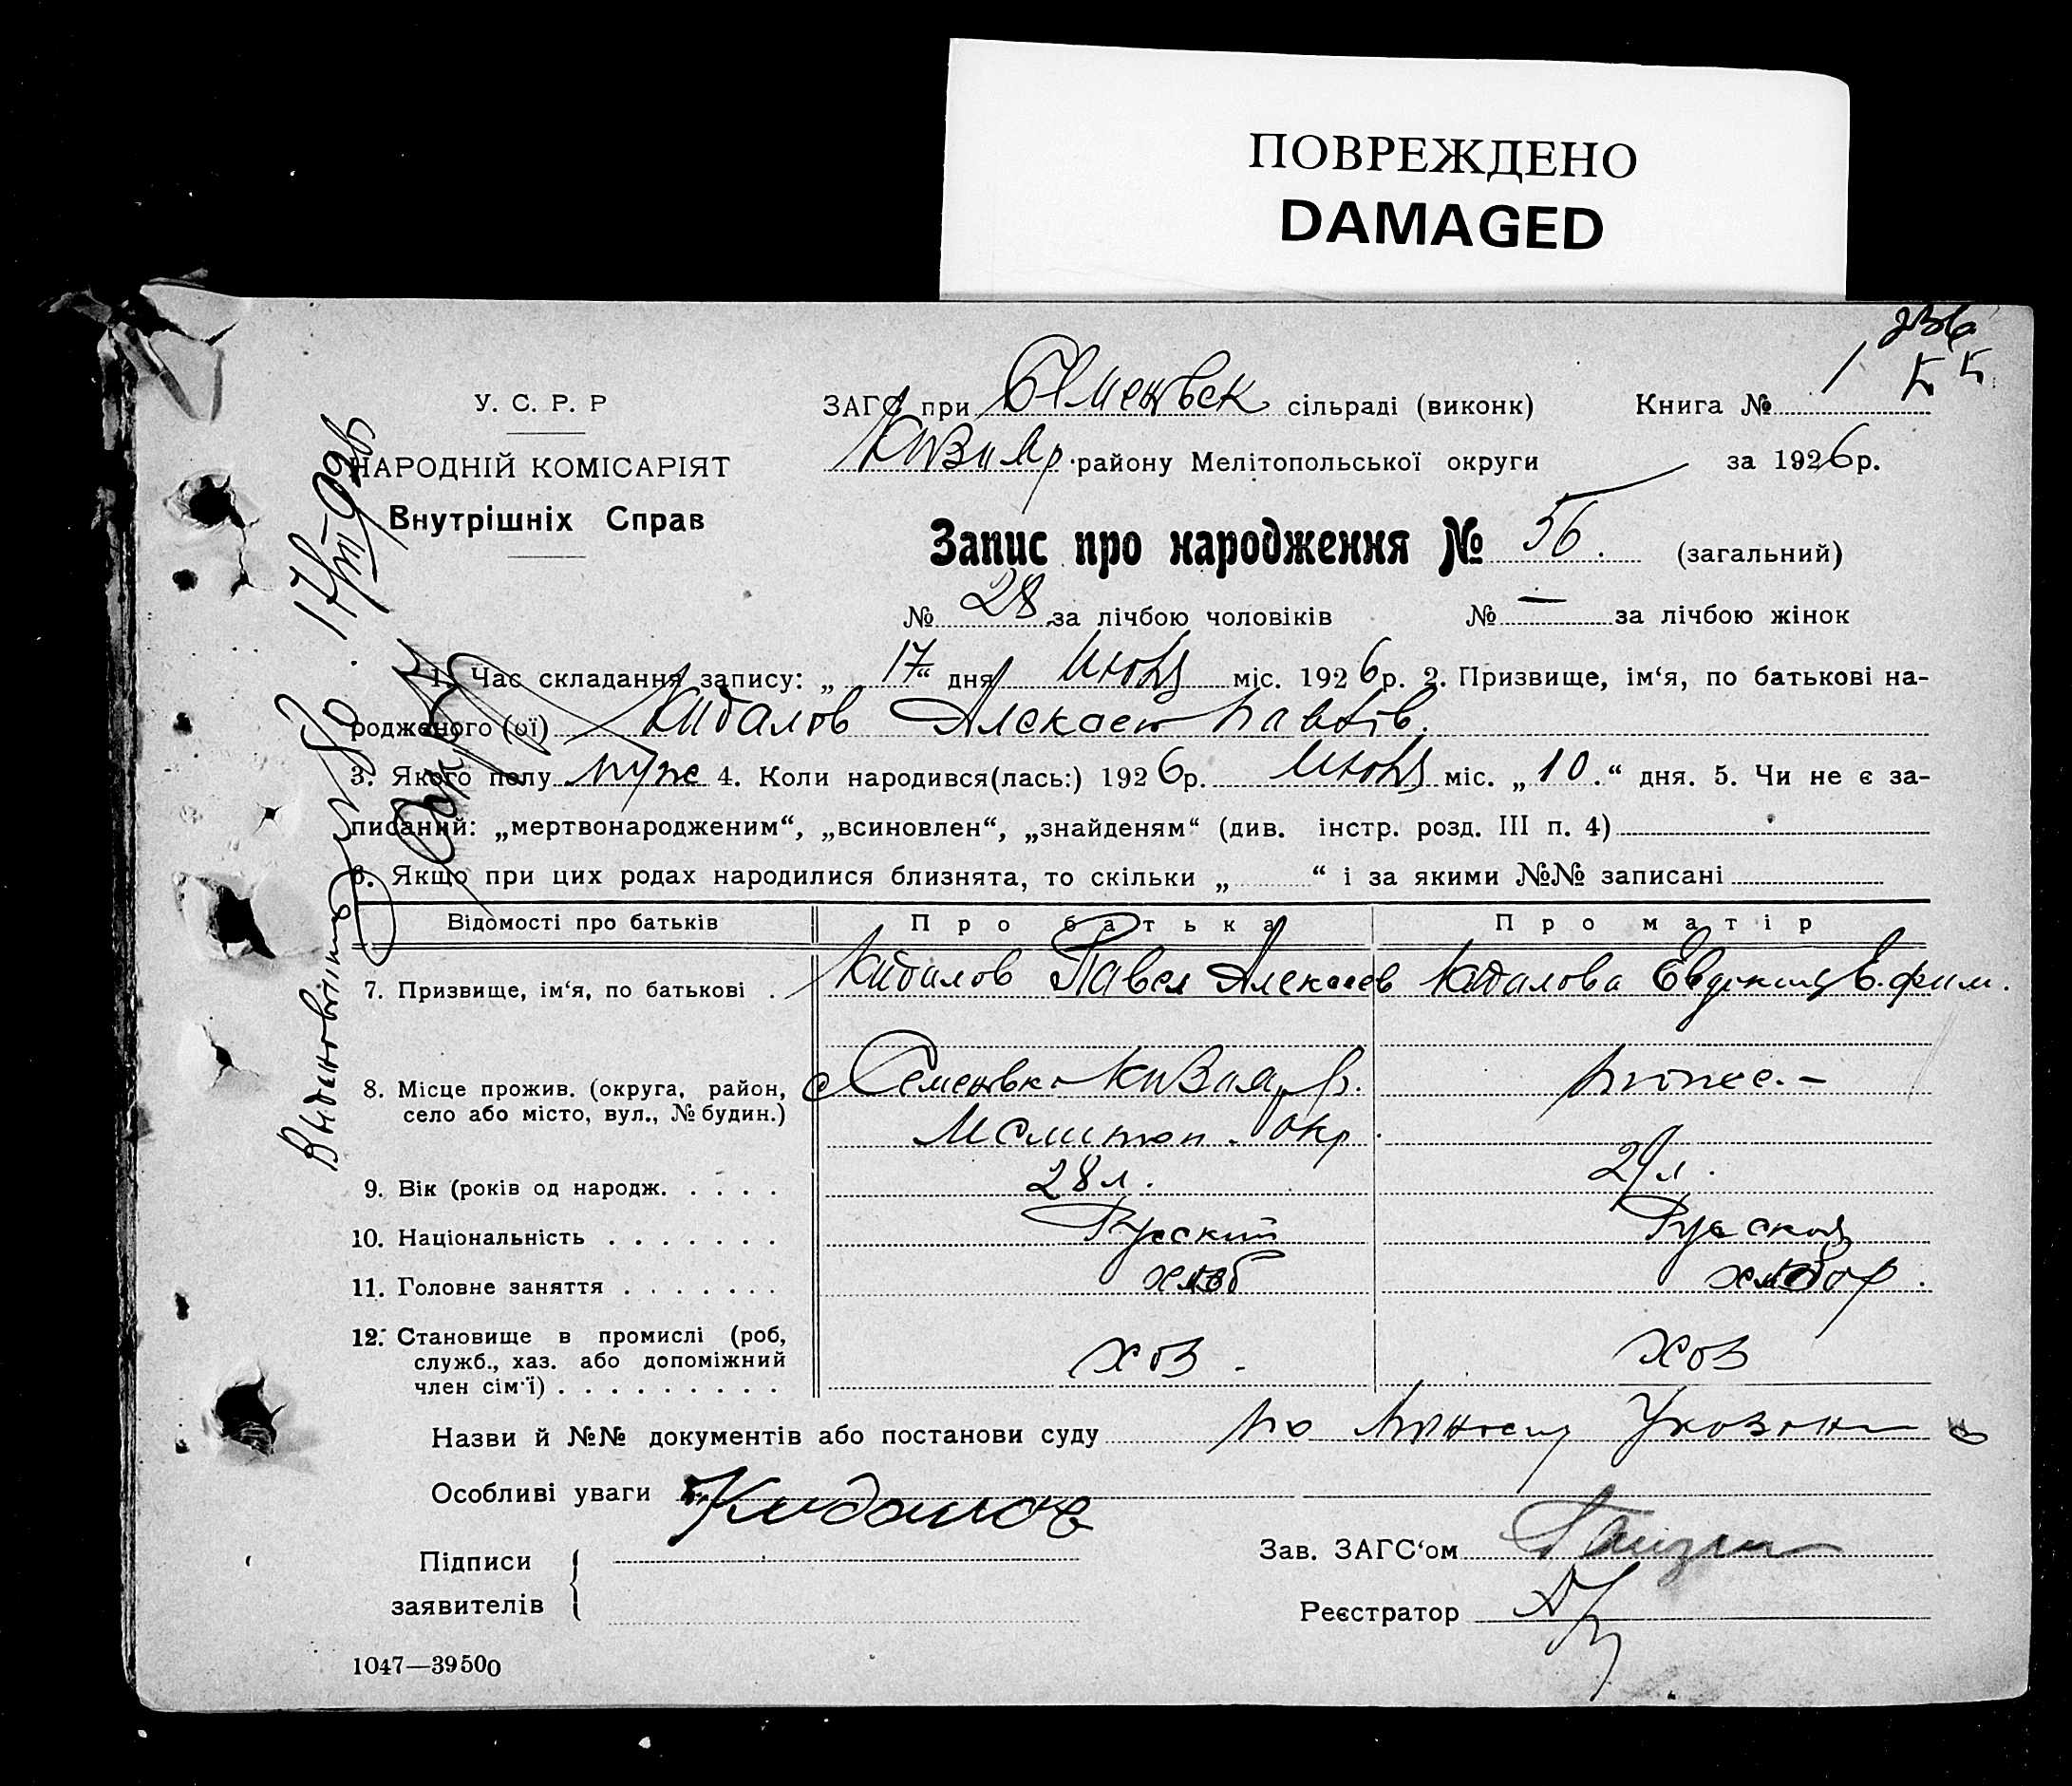 ПОВРЕЖДЕНО
DAMAGED
У. С. Р. Р
НАРОДНІЙ КОМІСАРІЯТ
Внутрішніх Справ
ЗАГС при сільраді (виконк) Книга № 1
району Мелітопольської округи за 1926р.
Запис про народження № 56. (загальний)
№ 28 за лічбою чоловіків № — за лічбою жінок
1. Час складання запису: „17“ дня Июня міс. 1926р. 2. Призвище, ім‘я, по батькові на-
родженого (ої) Кидалов
3. Якого полу муж 4. Коли народився(лась:) 1926р. Июня міс. „10.“ дня. 5. Чи не є за-
писаний: „мертвонародженим“, „всиновлен“, „знайденям“ (див. інстр. розд. III п. 4)
6. Якщо при цих родах народилися близнята, то скільки „ “ і за якими №№ записані
Відомості про батьків Про батька Про матір
7. Призвище, ім‘я, по батькові . Кидалов Павел Алексеев Кидалова Евдокия Ефим.
8. Місце прожив. (округа, район, с Семеновка р. тоже. -
село або місто, вул., № будин.) Мелитоп. окр.
9. Вік (років од народж. . . . . 28 л.
10. Національність . . . . . . . Русский Русская
11. Головне заняття . . . . . . . хлеб хлебор.
12. Становище в промислі (роб, хоз. хоз
служб., хаз. або допоміжний
член сім‘ї) . . . . . . . . .
Назви й №№ документів або постанови суду по
Особливі уваги
Кидалов
Підписи
заявителів
Зав. ЗАГС‘ом
Реєстратор
1047—39500